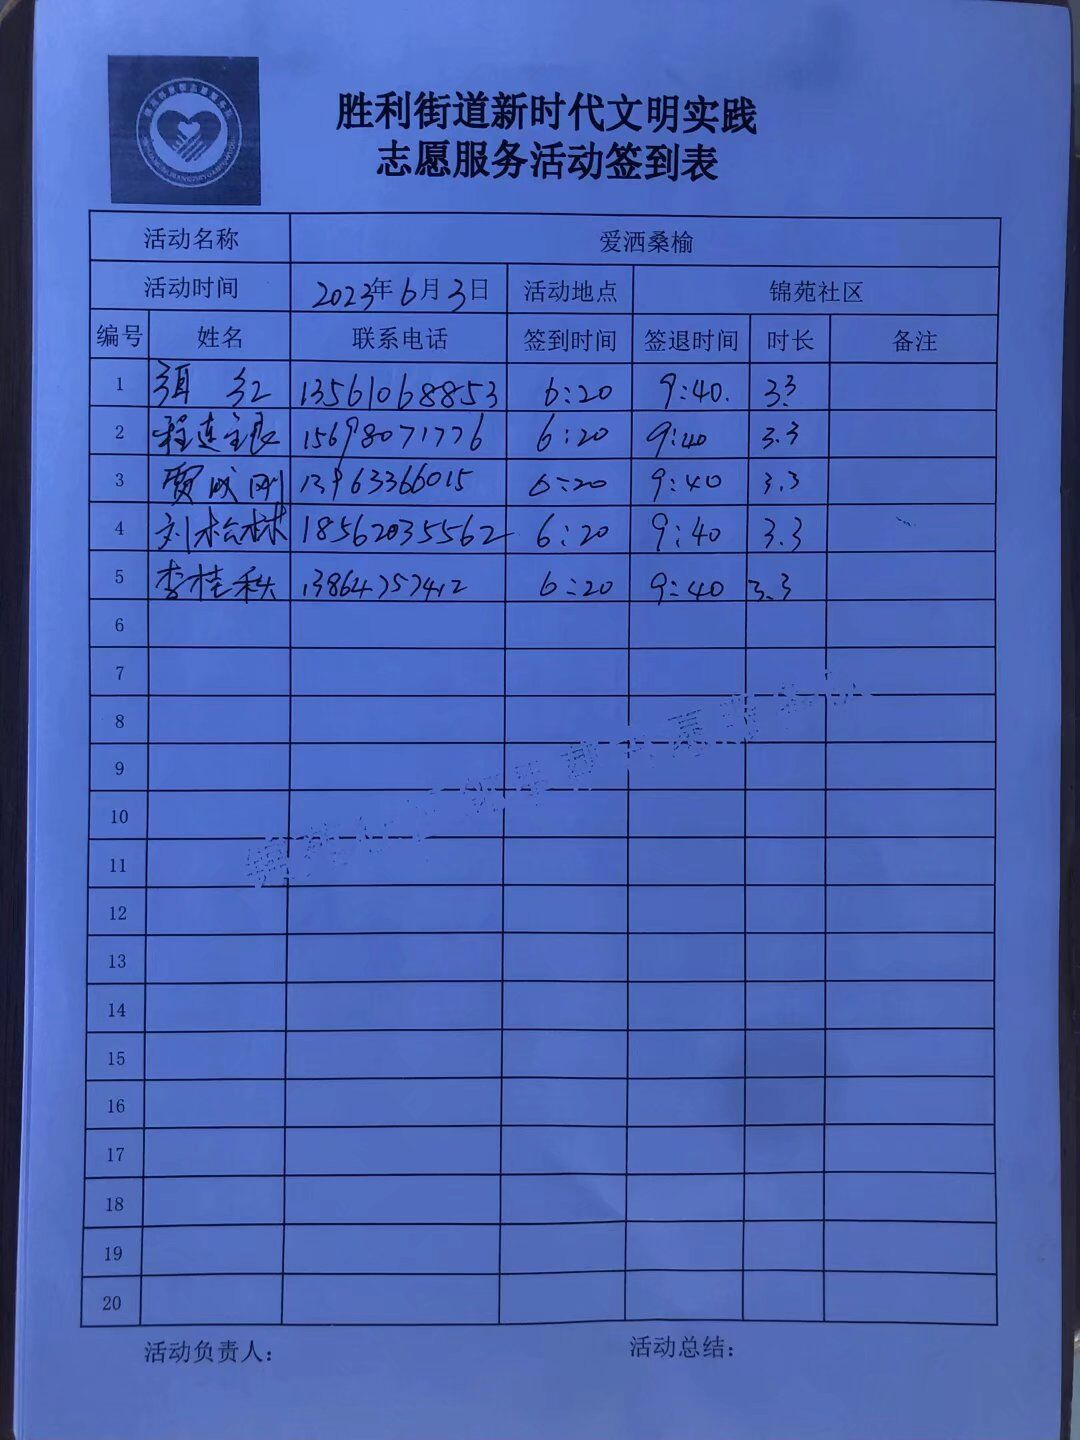 胜利街道新时代文明实践
志愿服务活动签到表
活动名称 爱洒桑榆
活动时间 2023年6月3日 活动地点 锦苑社区
编号 姓名 联系电话 签到时间 签退时间 时长 备注
1 红 13561068853 6:20 9:40. 3.3
2 程连银 15698071776 6:20 9:40 3.3
3 贾成刚 13963366015 6:20 9:40 3.3
4 刘松林 18562035562 6:20 9:40 3.3
5 李桂秋 13864757412 6:20 9:40 3.3
6
7
8
9
10
11
12
13
14
15
16
17
18
19
20
活动负责人: 活动总结: